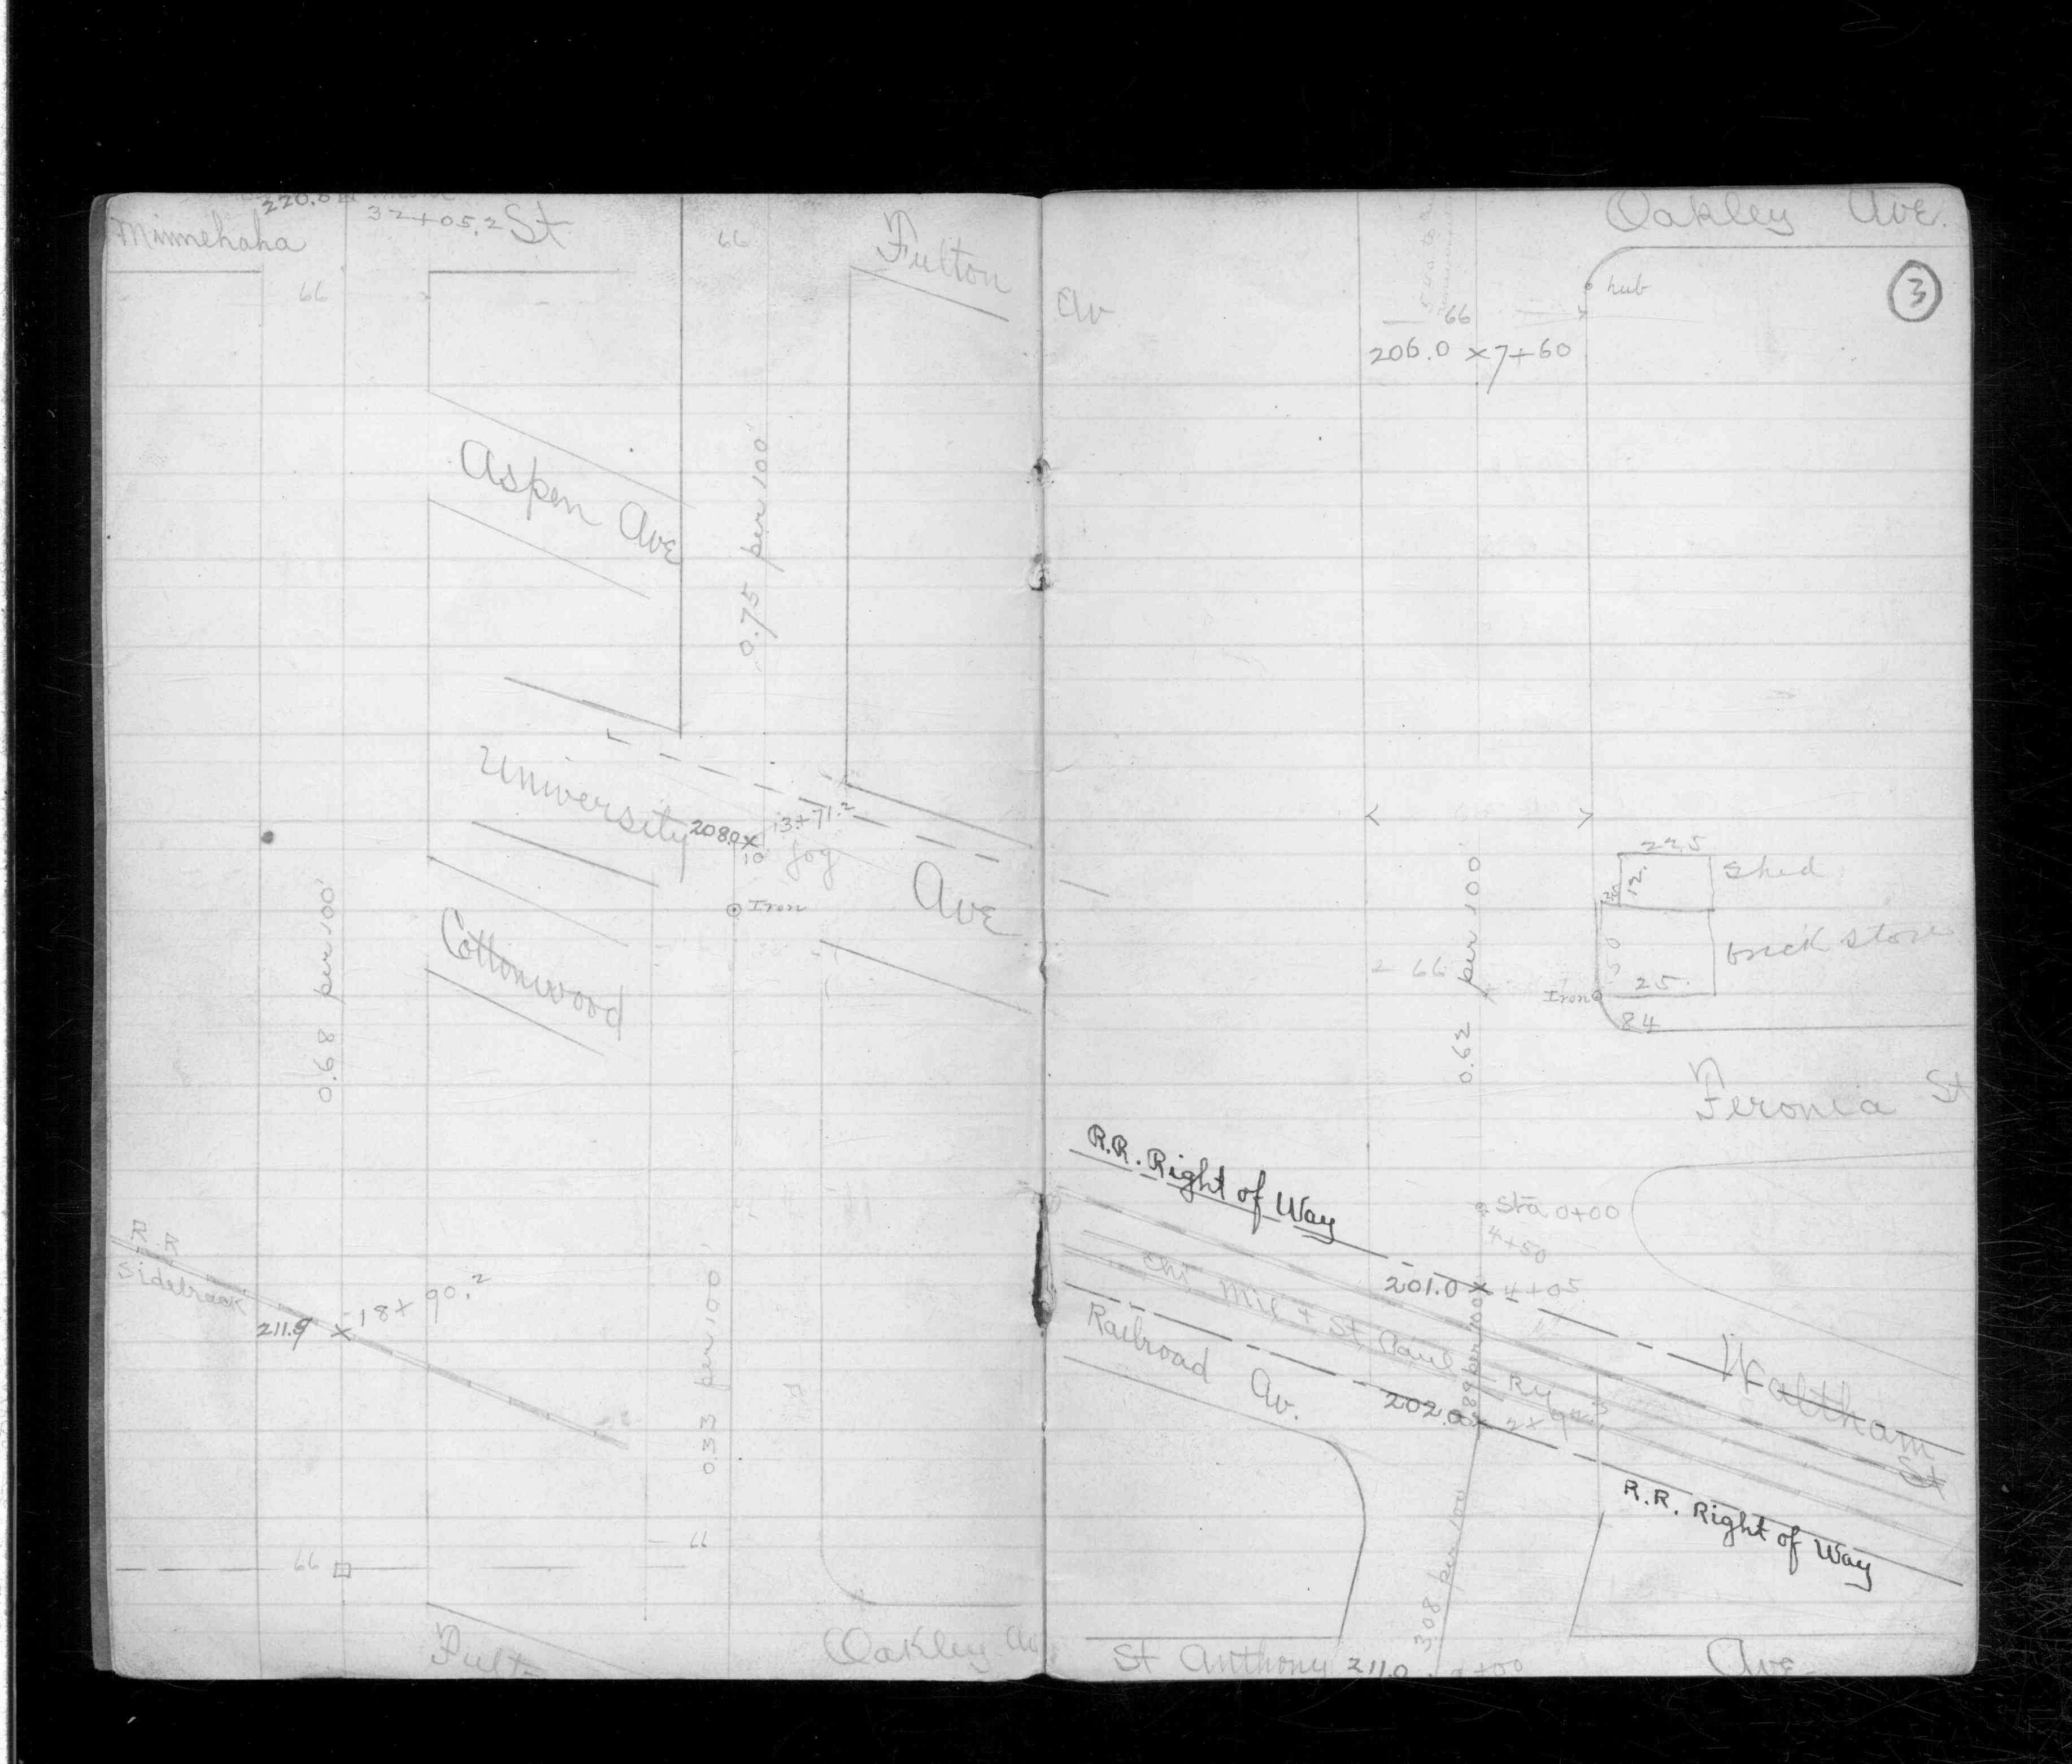 220.0
Minnehaha
32+05.2 St
66
66
Fulton
Aspen Ave
0.75 per 100'
University
208.0 x 13+71.2
10 Jog
Ave
Iron
Cottonwood
0.68 per 100'
R.R.
Sidetrack
211.9 x 18+90.2
0.33 per 100'
66
66
Fult
Oakley Av
Oakley Ave.
3
hub
Av
66
206.0 x 7+60
22.5
Shed
12.
50
brick store
0.62 per 100'
66
25.
Iron
84
Feronia St
R.R. Right of Way
Sta 0+00
4+50
201.0 x 4+05
Chi Mil & St. Paul Ry
Railroad Av.
Waltham
St
202.0 x
.889 per 100'
R.R. Right of Way
3.08 per 100'
St Anthony 211.0 0+00 Ave